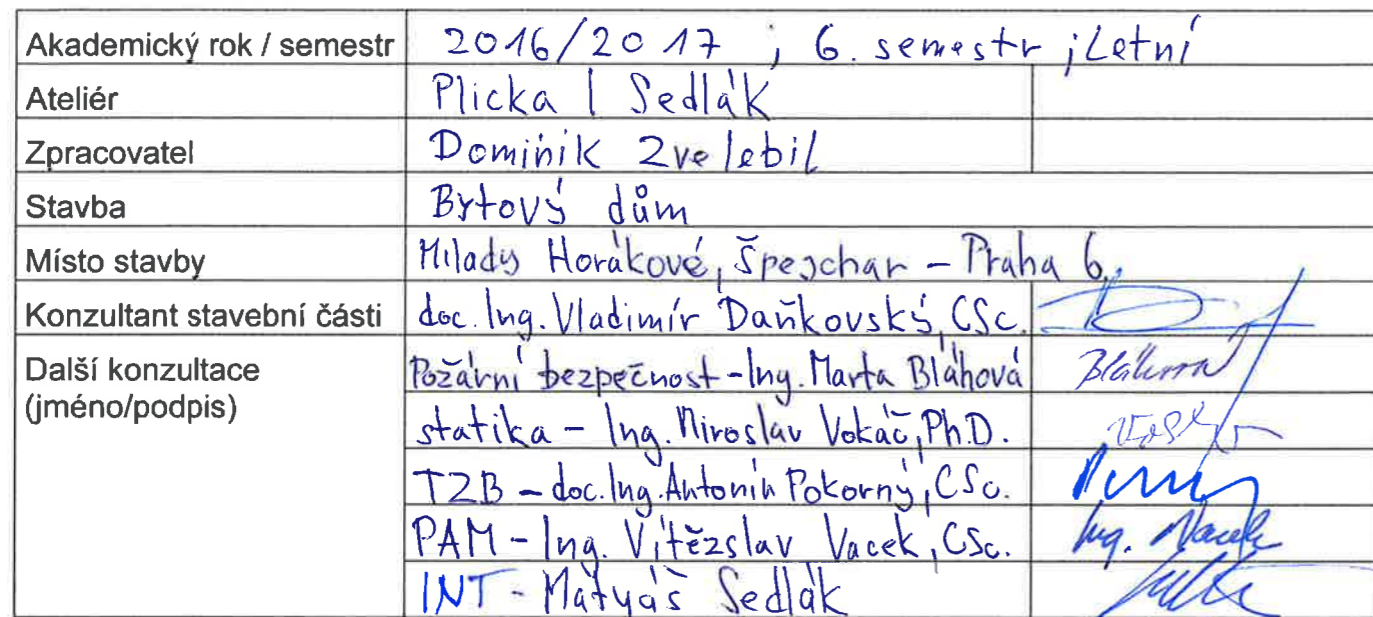 Akademický rok / semestr 2016/2017 ; 6. semestr ; Letní
Ateliér Plicka | Sedlák
Zpracovatel Dominik Zvelebil
Stavba Bytový dům
Místo stavby Milady Horákové, Špejchar - Praha 6
Konzultant stavební části doc. Ing. Vladimír Daňkovský, CSc.
Další konzultace Požární bezpečnost - Ing. Marta Bláhová Bláhová
(jméno/podpis) statika - Ing. Miroslav Vokáč, Ph.D.
TZB - doc. Ing. Antonín Pokorný, CSc.
PAM - Ing. Vítězslav Vacek, CSc. Ing. Vacek
INT - Matyáš Sedlák